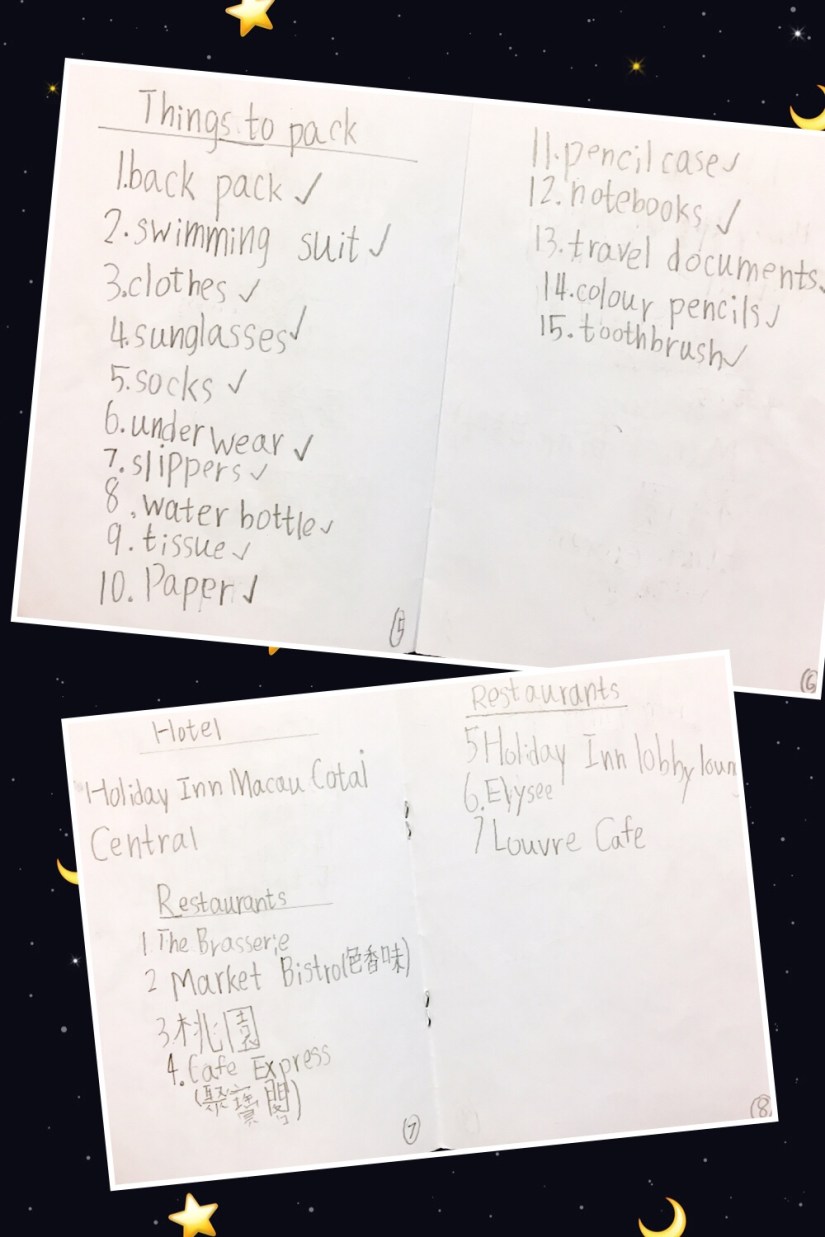 Things to pack
1.back pack ✓
2.swimming suit ✓
3.clothes ✓
4.sunglasses ✓
5.socks ✓
6.underwear ✓
7.slippers ✓
8.water bottle ✓
9.tissue ✓
10.Paper ✓
5
11.pencil case ✓
12.notebooks ✓
13.travel documents ✓
14.colour pencils ✓
15.toothbrush ✓
6
Hotel
Holiday Inn Macau Cotai
Central
Restaurants
1 The Brasserie
2 Market Bistro(色香味)
3 桃園
4.Cafe Express
(聚寶閣)
7
Restaurants
5 Holiday Inn lobby loun
6.Elysee
7 Louvre Cafe
8